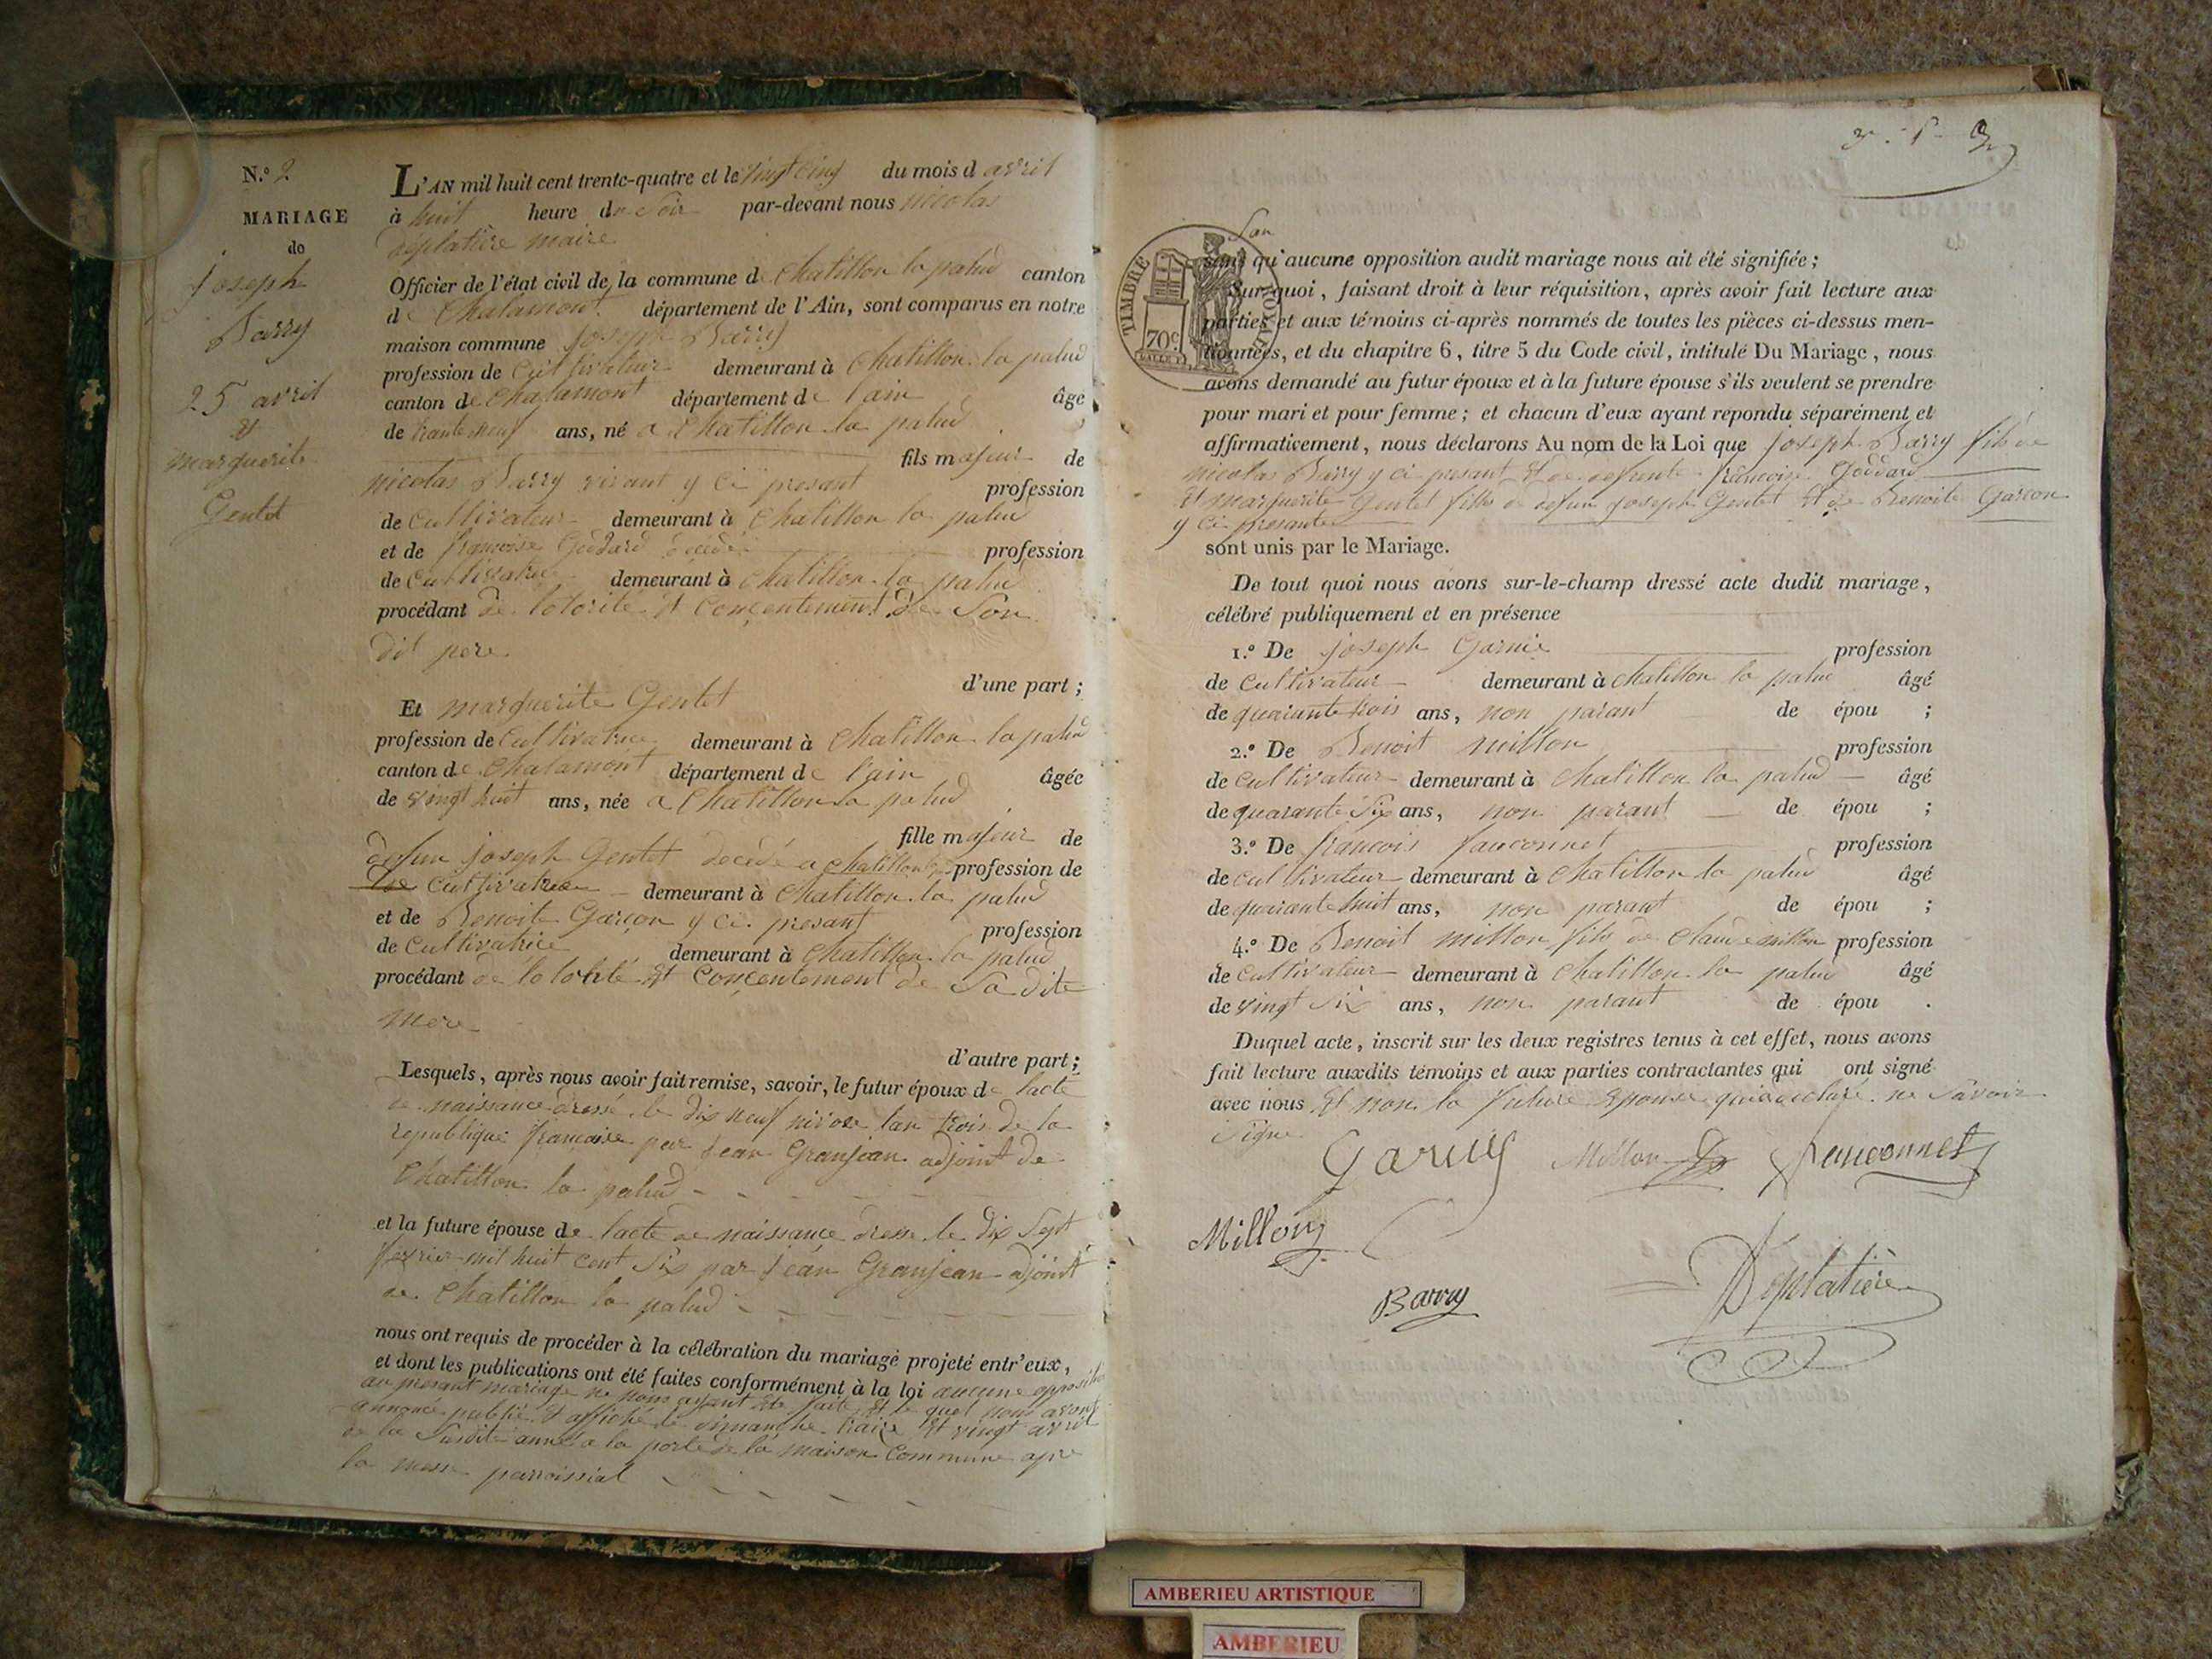 N.º 2
MARIAGE
de
joseph
Barry
25 avril
et
marguerite
Gentet
L'AN mil huit cent trente-quatre et le vingt cinq du mois d avril
à huit heure du Soir par-devant nous nicolas
Deplatière maire
Officier de l'état civil de la commune de chatillon la palud canton
de Chalamont département de l'Ain, sont comparus en notre
maison commune joseph Barry
profession de Cultivateur demeurant à Chatillon la palud
canton de Chalamont département de l'ain âgé
de trante neuf ans, né a Chatillon la palud
fils majeur de
nicolas Barry vivant y ci presant profession
de Cultivateur demeurant à Chatillon la palud
et de françoise Goddard décédée profession
de Cultivatrice demeurant à chatillon la palud
procédant de lotorité et conçentement de Son
dit pere
d'une part ;
Et marguerite Gentet
profession de Cultivatrice demeurant à Chatillon la palud
canton de Chalamont département de l'ain âgée
de vingt huit ans, née a Chatillon la palud
fille majeur de
defun joseph Gentet décédé a chatillon profession de
cultivatrice demeurant à Chatillon la palud
et de Benoite Garçon y ci presant profession
de Cultivatrice demeurant à Chatillon la palud
procédant de et conçentement de Sa dite
mere
d'autre part ;
Lesquels, après nous avoir fait remise, savoir, le futur époux de lacte
de naissance dressé le dix neuf nivose lan trois de la
republique françaire par jean Granjean adjoint de
Chatillon la palud
et la future épouse de lacte de naissance dresse le dix Sept
fevrier mil huit cent Six par jean Granjean adjoint
de Chatillon la palud
nous ont requis de procéder à la célébration du mariage projeté entr'eux,
et dont les publications ont été faites conformément à la loi aucune opposition
au presant mariage ne nous ayant été faite et le quel nous avons
annoncé publié et affiché le dimanche traize et vingt avril
de la Susdite anné a la porte de la maison Commune apre
la messe parroissial
San
sans qu'aucune opposition audit mariage nous ait été signifiée ;
Sur quoi, faisant droit à leur réquisition, après avoir fait lecture aux
parties et aux témoins ci-après nommés de toutes les pièces ci-dessus men-
tionnées, et du chapitre 6, titre 5 du Code civil, intitulé Du Mariage, nous
avons demandé au futur époux et à la future épouse s'ils veulent se prendre
pour mari et pour femme ; et chacun d'eux ayant répondu séparément et
affirmativement, nous déclarons Au nom de la Loi que joseph Barry fils de
nicolas Barry y ci presant et de defunte françoise Goddard
et marguerite Gentet fille de defun joseph Gentet et de Benoite Garcon
y ci presante
sont unis par le Mariage.
De tout quoi nous avons sur-le-champ dressé acte dudit mariage,
célébré publiquement et en présence
1.º De joseph Garnie profession
de Cultivateur demeurant à chatillon la palud âgé
de quarante trois ans, non parant de épou ;
2.º De Benoit millon profession
de cultivateur demeurant à chatillon la palud âgé
de quarante Six ans, non parant de épou ;
3.º De francois fauconnet profession
de cultivateur demeurant à chatillon la palud âgé
de quarante huit ans, non parant de épou ;
4.º De Benoit millon fils de Claude millon profession
de Cultivateur demeurant à Chatillon la palud âgé
de vingt Six ans, non parant de épou .
Duquel acte, inscrit sur les deux registres tenus à cet effet, nous avons
fait lecture auxdits témoins et aux parties contractantes qui ont signé
avec nous et non la future Epouse qui a declaré ne Savoir
Signe
Millon fauconnet
Millon
Barry Deplatière
TIMBRE ROYAL
70c
AMBERIEU ARTISTIQUE
AMBERIEU